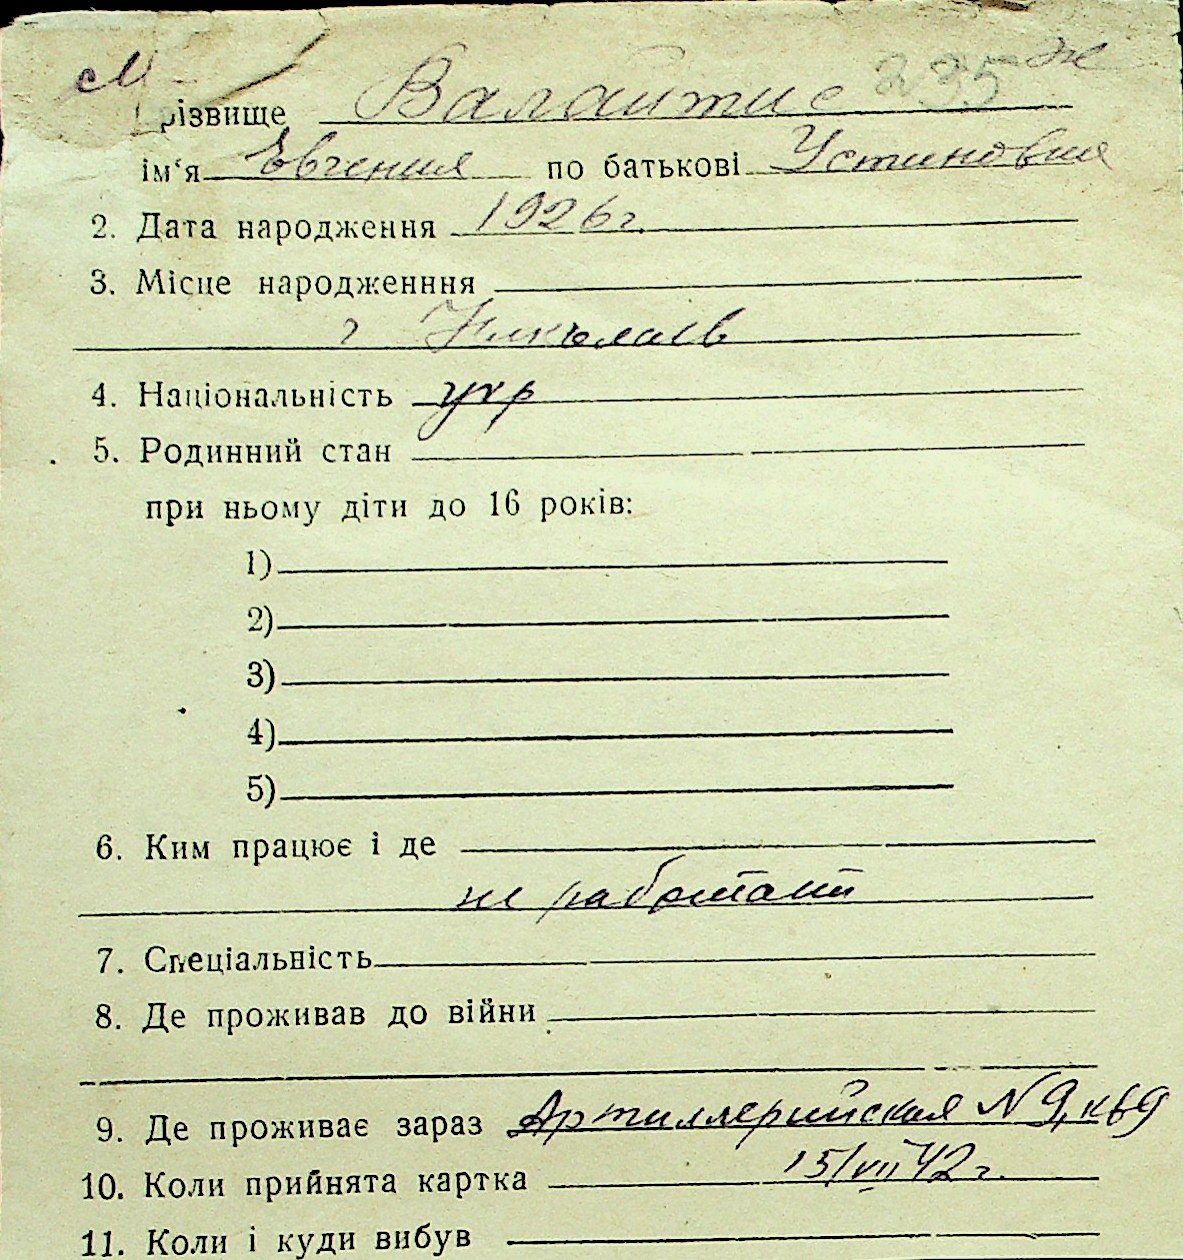 М 235 ж
різвище Валайтис
ім‘я Евгения по батькові Устиновна
2. Дата народження 1926 г.
3. Місце народженння
г Николаев
4. Національність укр
5. Родинний стан
при ньому діти до 16 років:
1)
2)
3)
4)
5)
6. Ким працює і де
не работает
7. Спеціальність
8. Де проживав до війни
9. Де проживає зараз Артиллерийская N 9, кв 9
10. Коли прийнята картка 15/VII 42 г.
11. Коли і куди вибув